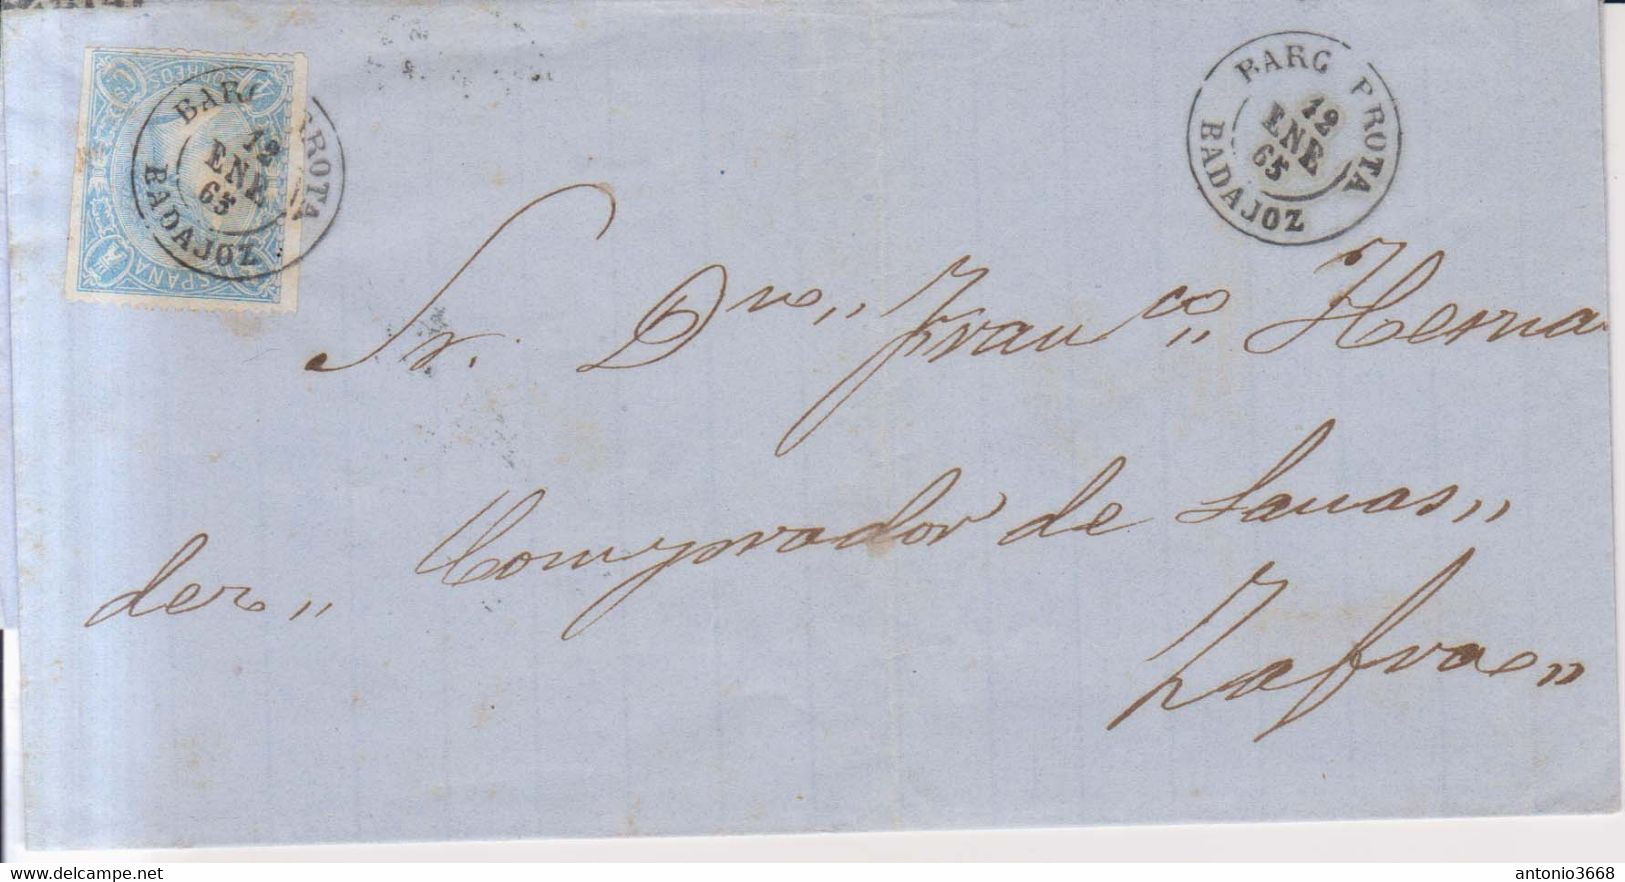 CORREOS
BARC PROTA
12
ENE
65
BADAJOZ
ESPAÑA
BARC PROTA
12
ENE
65
BADAJOZ
Sr. Dn,, Franco,, Herna
der,, Comprador de Lanas,,
Zafra,,
antonio3668